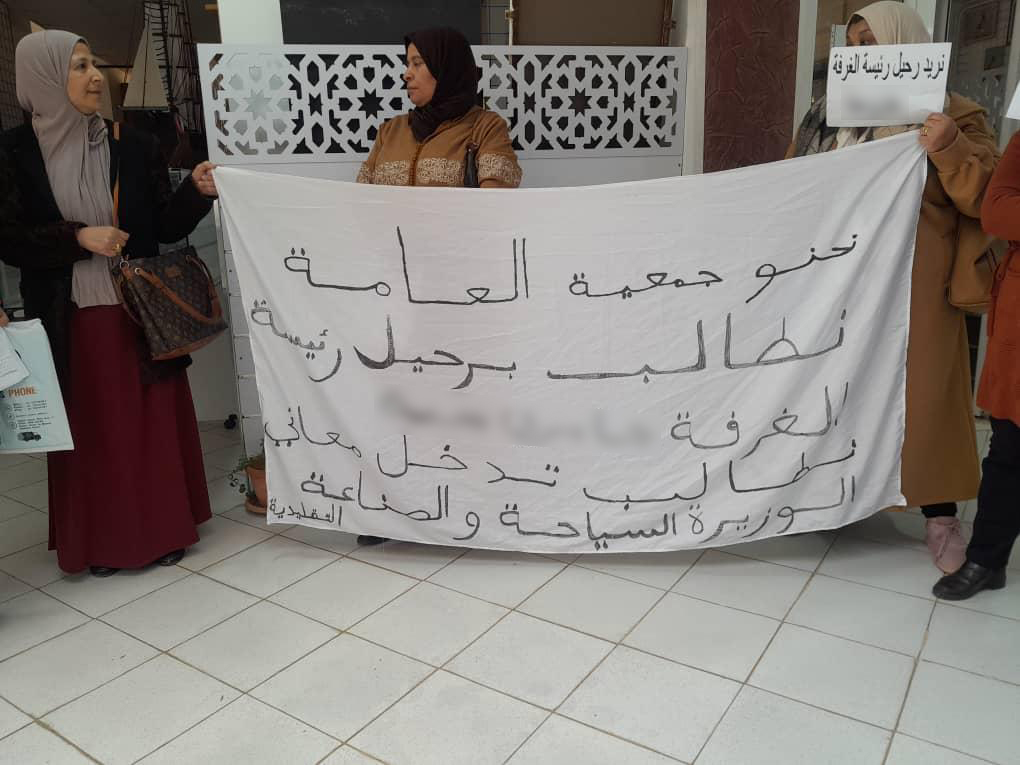 نريد رحيل رئيسة الغرفة
نحنو جمعية العامة
نطالب برحيل رئيسة
الغرفة
نطالب تدخل معاني
الوزيرة السياحة والصناعة
التقليدية
PHONE